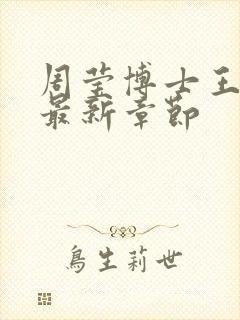 周莹博士王
最新章节
鸟生莉世